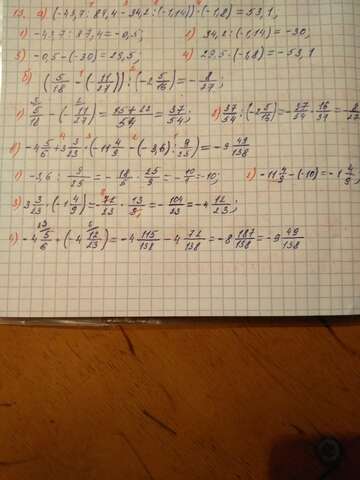 13. а) (-43,7 : 87,4 - 34,2 : (-1,14)) · (-1,8) = 53,1,
1) -43,7 : 87,4 = -0,5; 2) 34,2 : (-1,14) = -30,
3) -0,5 - (-30) = 29,5, 4) 29,5 · (-1,8) = -53,1
б) (5/18 - (-11/27)) : (-2 5/16) = -8/27,
1) 5/18 - (-11/27) = 15+22/54 = 37/54; 2) 37/54 : (-2 5/16) = -37/54 · 16/37 = -8/27
в) -4 5/6 + 3 3/23 · (-11 4/9 - (-3,6) : 9/25) = -9 49/138
1) -3,6 : 9/25 = -18/5 · 25/9 = -10/1 = -10; 2) -11 4/9 - (-10) = -1 4/9,
3) 3 3/23 · (-1 4/9) = -72/23 · 13/9 = -104/23 = -4 12/23;
4) -4 5/6 + (-4 12/23) = -4 115/138 - 4 72/138 = -8 187/138 = -9 49/138